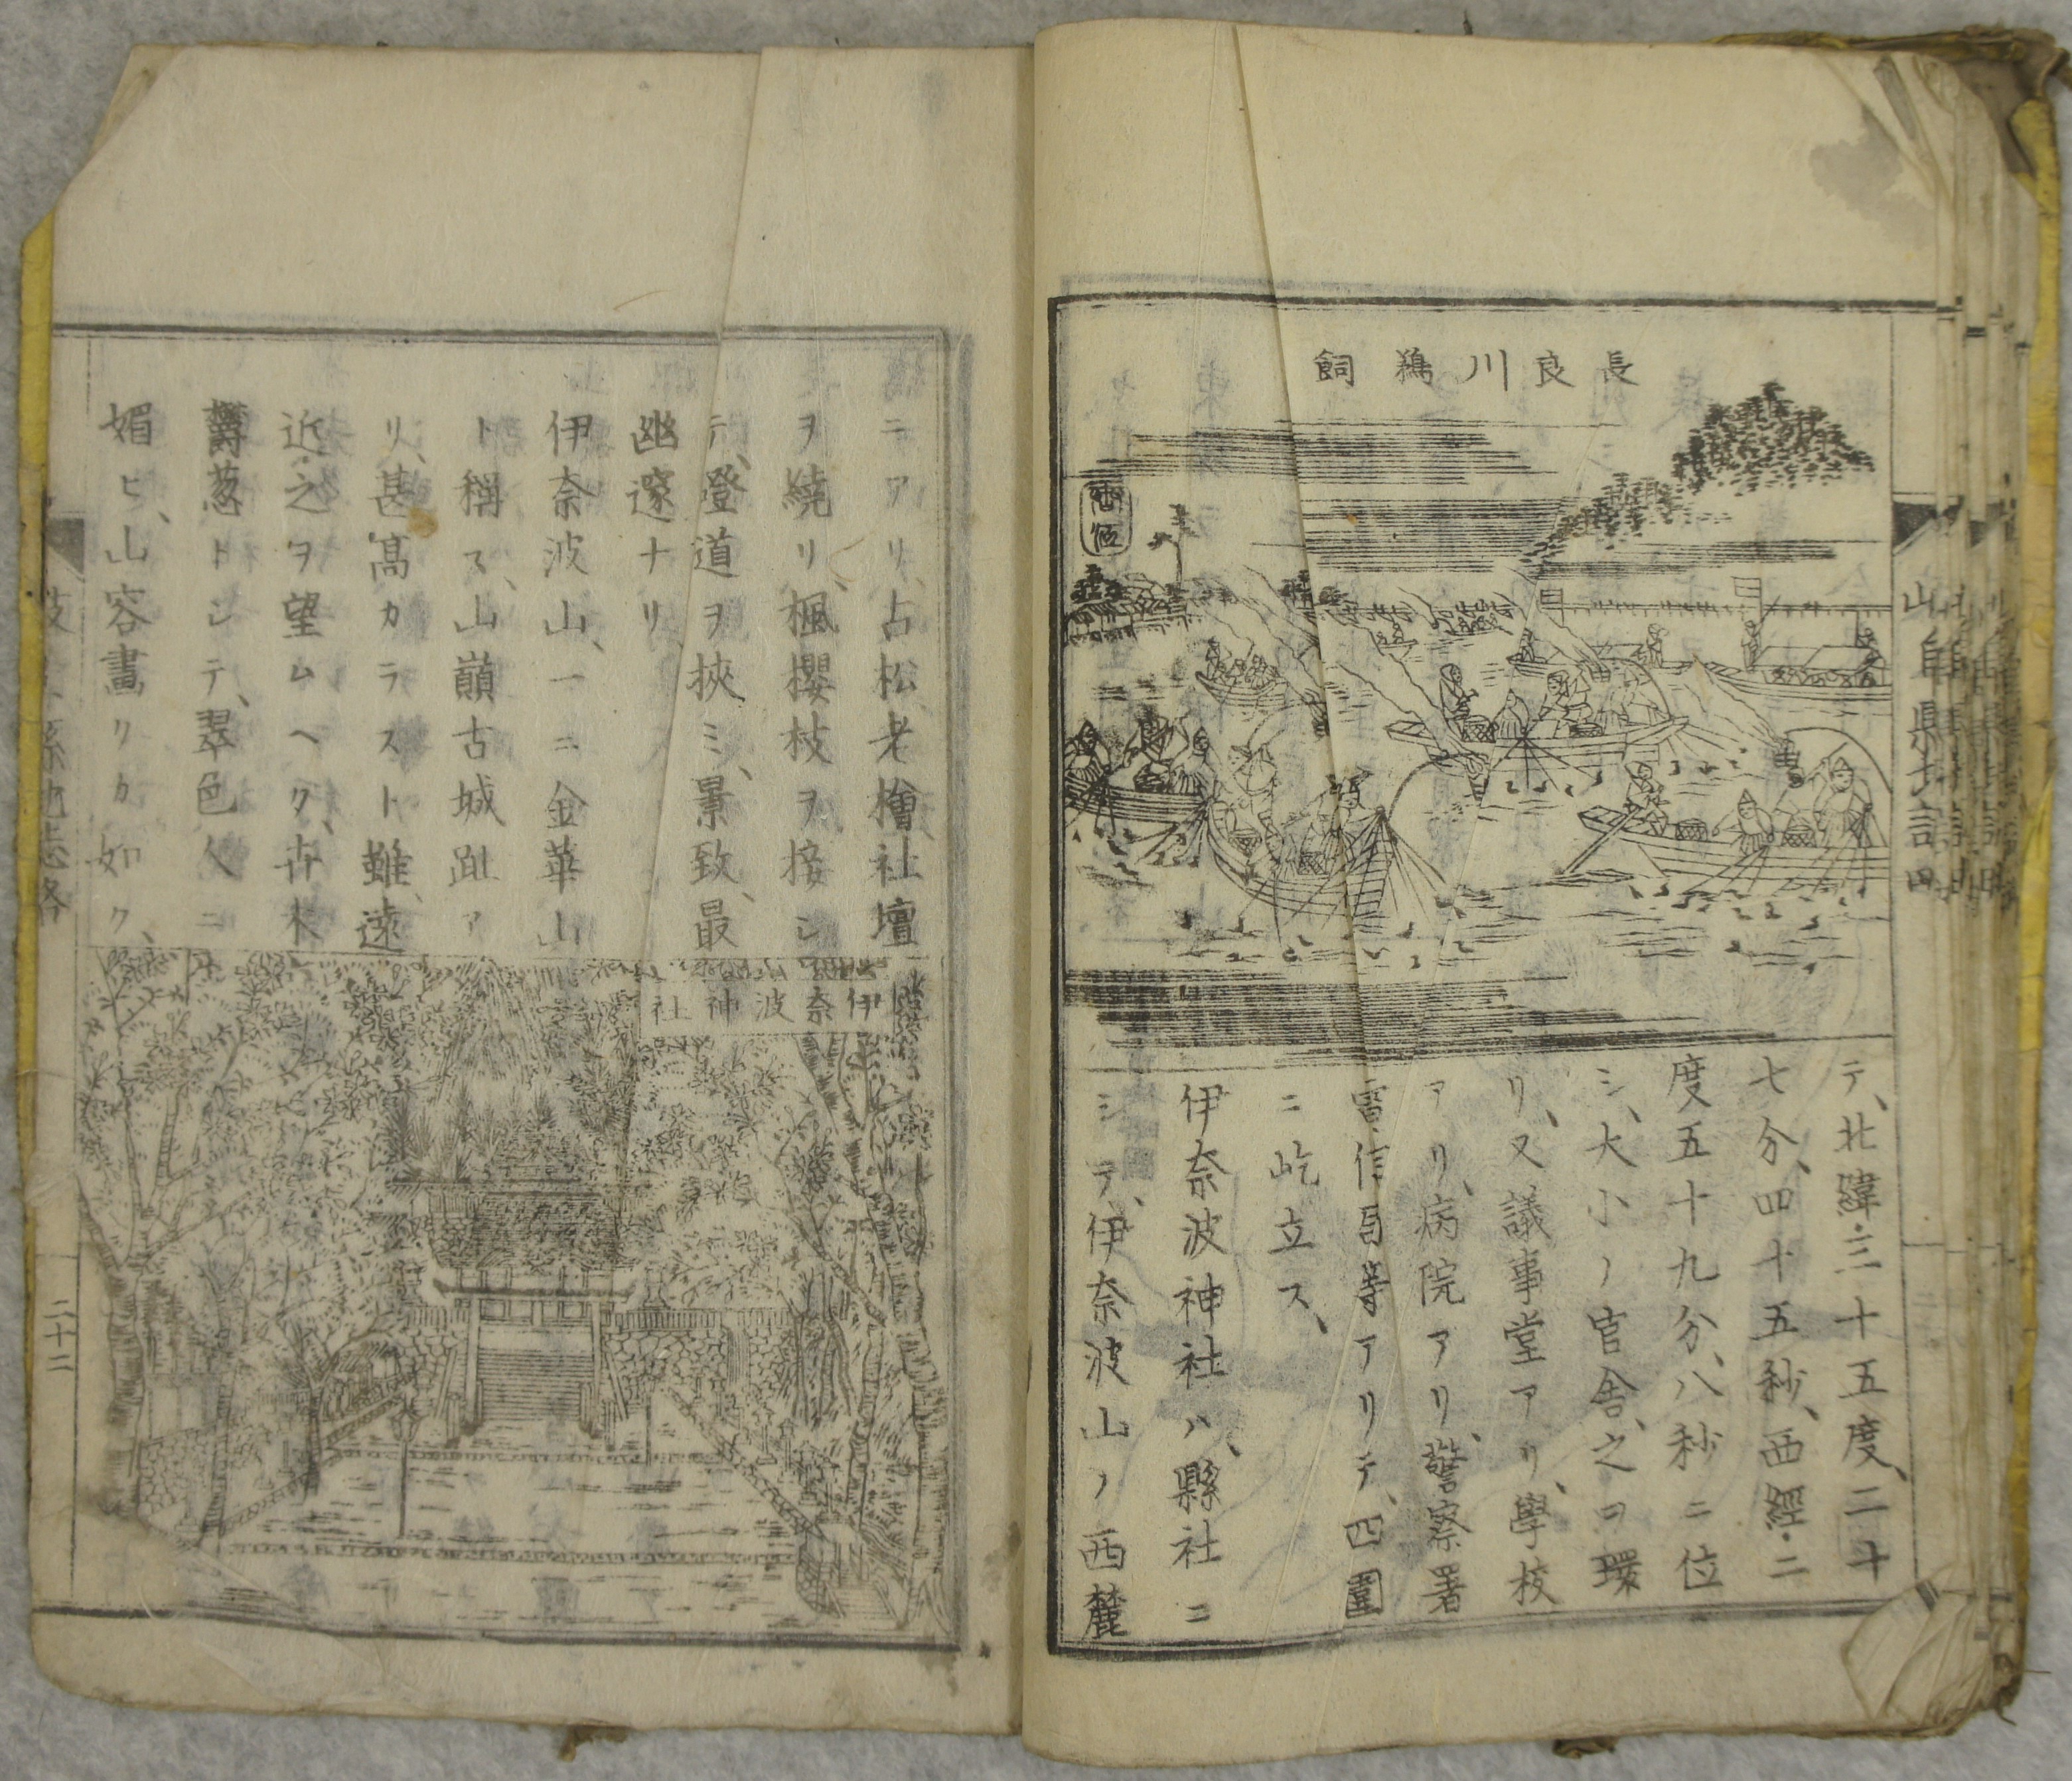 長良川鵜飼
テ、北緯三十五度、二十
七分、四十五秒、西經二
度五十九分、八秒ニ位
シ、大小ノ官舎、之ヲ環
リ、又議事堂アリ、學校
アリ、病院アリ、警察署
電信局等アリテ、四圍
ニ屹立ス、
伊奈波神社ハ、縣社ニ
シテ、伊奈波山ノ西麓
ニアリ、古松老檜社壇
ヲ繞リ、楓櫻枝ヲ接シ
テ、登道ヲ挾ミ、景致、最
幽邃ナリ、
伊奈波山、一ニ金華山
ト稱ス、山巓古城趾ア
リ、甚高カラスト雖、遠
近之ヲ望ムヘク、卉木
欝葱トシテ、翠色人ニ
媚ヒ、山容畫クカ如ク、
伊奈波神社
二十二